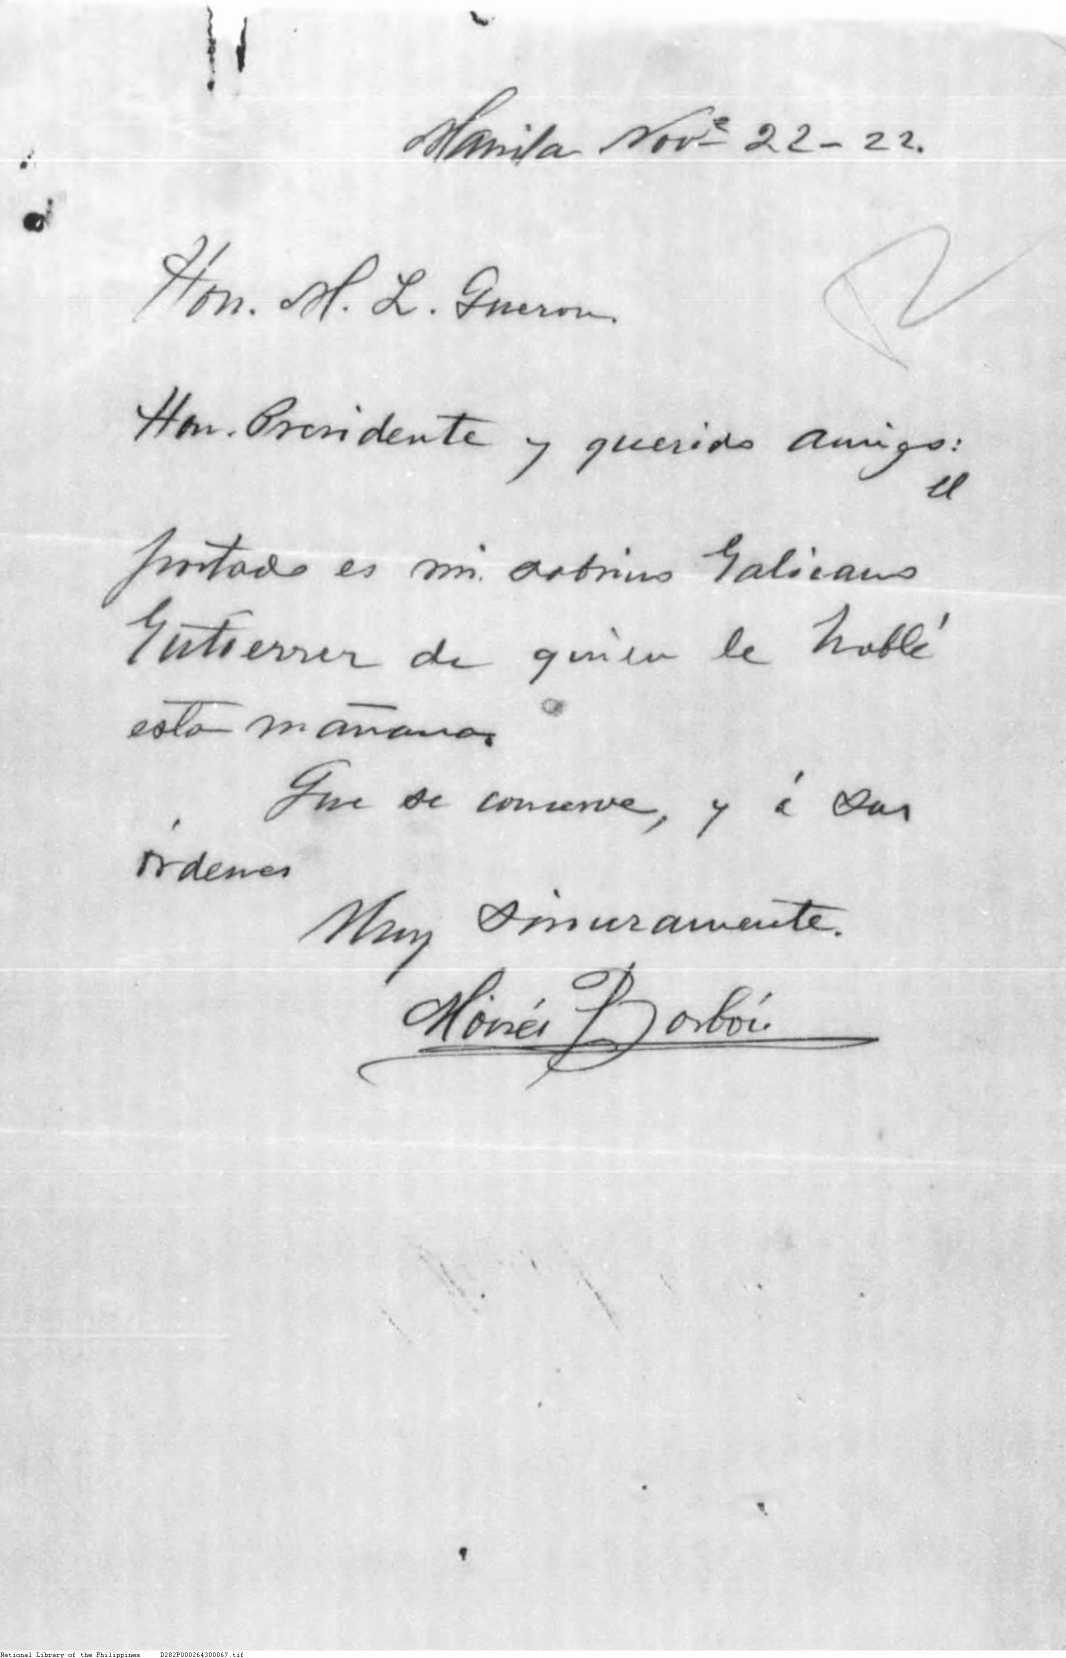 Manila Nov.e 22 - 22.
Hon. M. L. Queron.
Hon. Presidente y querido amigo:
el
portado es mi sobrino Galicano
Gutierrez de quien le hablé
esta mañana.
Que se conserve, y á sus
órdenes
Muy sinceramente.
Moisés Borbói
National Library of the Philippines D282P000264300067.tif